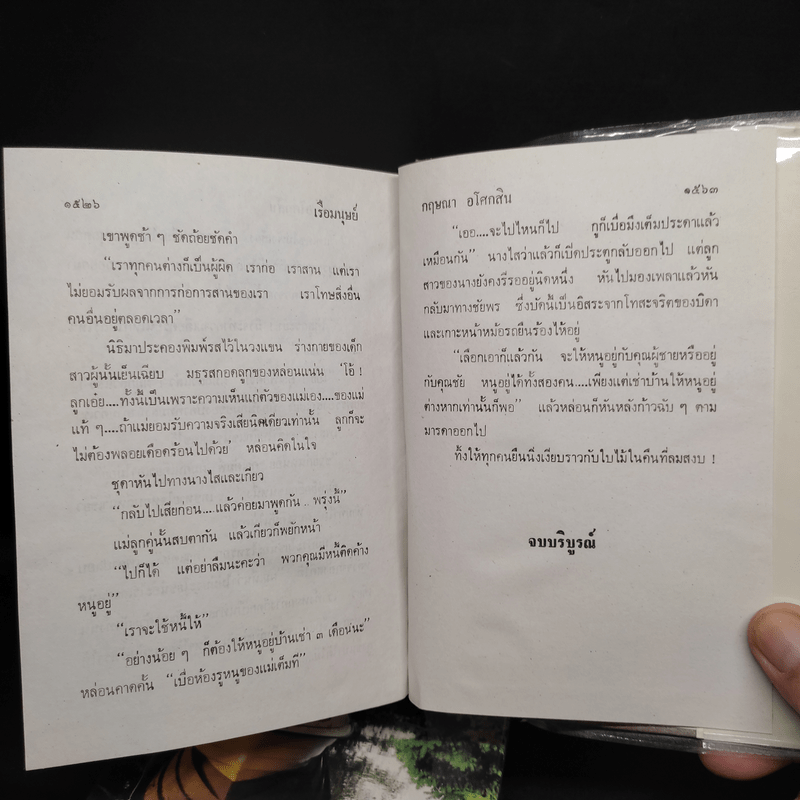 ๑๕๒๖
เรือมนุษย์
เขาพูดช้า ๆ ชัดถ้อยชัดคำ
“เราทุกคนต่างก็เป็นผู้ผิด เราก่อ เราสาน แต่เรา
ไม่ยอมรับผลจากการก่อการสานของเรา เราโทษสิ่งอื่น
คนอื่นอยู่ตลอดเวลา”
นิธิมาประคองพิมพ์รสไว้ในวงแขน ร่างกายของเด็ก
สาวผู้นั้นเย็นเฉียบ มธุรสกอดลูกของหล่อนแน่น ‘โธ่ !
ลูกเอ๋ย....ทั้งนี้เป็นเพราะความเห็นแก่ตัวของแม่เอง....ของแม่
แท้ ๆ....ถ้าแม่ยอมรับความจริงเสียนิดเดียวเท่านั้น ลูกก็จะ
ไม่ต้องพลอยเดือดร้อนไปด้วย’ หล่อนคิดในใจ
ชุดาหันไปทางนางไสและเกียว
“กลับไปเสียก่อน....แล้วค่อยมาพูดกัน .. พรุ่งนี้”
แม่ลูกคู่นั้นสบตากัน แล้วเกียวก็พยักหน้า
“ไปก็ได้ แต่อย่าลืมนะคะว่า พวกคุณมีหนี้ติดค้าง
หนูอยู่”
“เราจะใช้หนี้ให้”
“อย่างน้อย ๆ ก็ต้องให้หนูอยู่บ้านเช่า ๓ เดือนนะ”
หล่อนคาดคั้น “เบื่อห้องรูหนูของแม่เต็มที”
กฤษณา อโศกสิน
๑๕๖๓
“เออ....จะไปไหนก็ไป กูก็เบื่อมึงเต็มประดาแล้ว
เหมือนกัน” นางไสว่าแล้วก็เปิดประตูกลับออกไป แต่ลูก
สาวของนางยังคงรีรออยู่นิดหนึ่ง หันไปมองเพลาแล้วหัน
กลับมาทางชัยพร ซึ่งบัดนี้เป็นอิสระจากโทสะจริตของบิดา
และเกาะหน้าหม้อรถยืนร้องไห้อยู่
“เลือกเอาก็แล้วกัน จะให้หนูอยู่กับคุณผู้ชายหรืออยู่
กับคุณชัย หนูอยู่ได้ทั้งสองคน....เพียงแต่เช่าบ้านให้หนูอยู่
ต่างหากเท่านั้นก็พอ” แล้วหล่อนก็หันหลังก้าวฉับ ๆ ตาม
มารดาออกไป
ทิ้งให้ทุกคนยืนนิ่งเงียบราวกับใบไม้ในคืนที่ลมสงบ !
จบบริบูรณ์